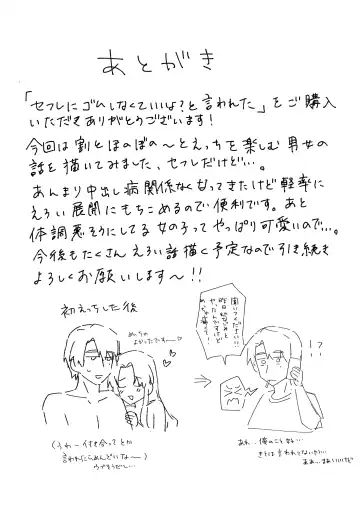 あとがき
「セフレにゴムしなくていいよ?と言われた」をご購入
いただきありがとうございます!
今回は割とほのぼの〜とえっちを楽しむ男女の
話を描いてみました、セフレだけど…。
あんまり中出し病関係なくなってきたけど軽率に
えろい展開にもちこめるので便利です。あと
体調悪そうにしてる女の子ってやっぱり可愛いので…。
今後もたくさんえろい話描く予定なので引き続き
よろしくお願いします〜!!
初えっちした後
めっちゃ
よかったです〜〜♡
(うわー付き合ってとか
言われたらめんどいな〜)
聞いてくださいよ!!
昨日
!?
あれ…俺のこと
まぁ…いいけど